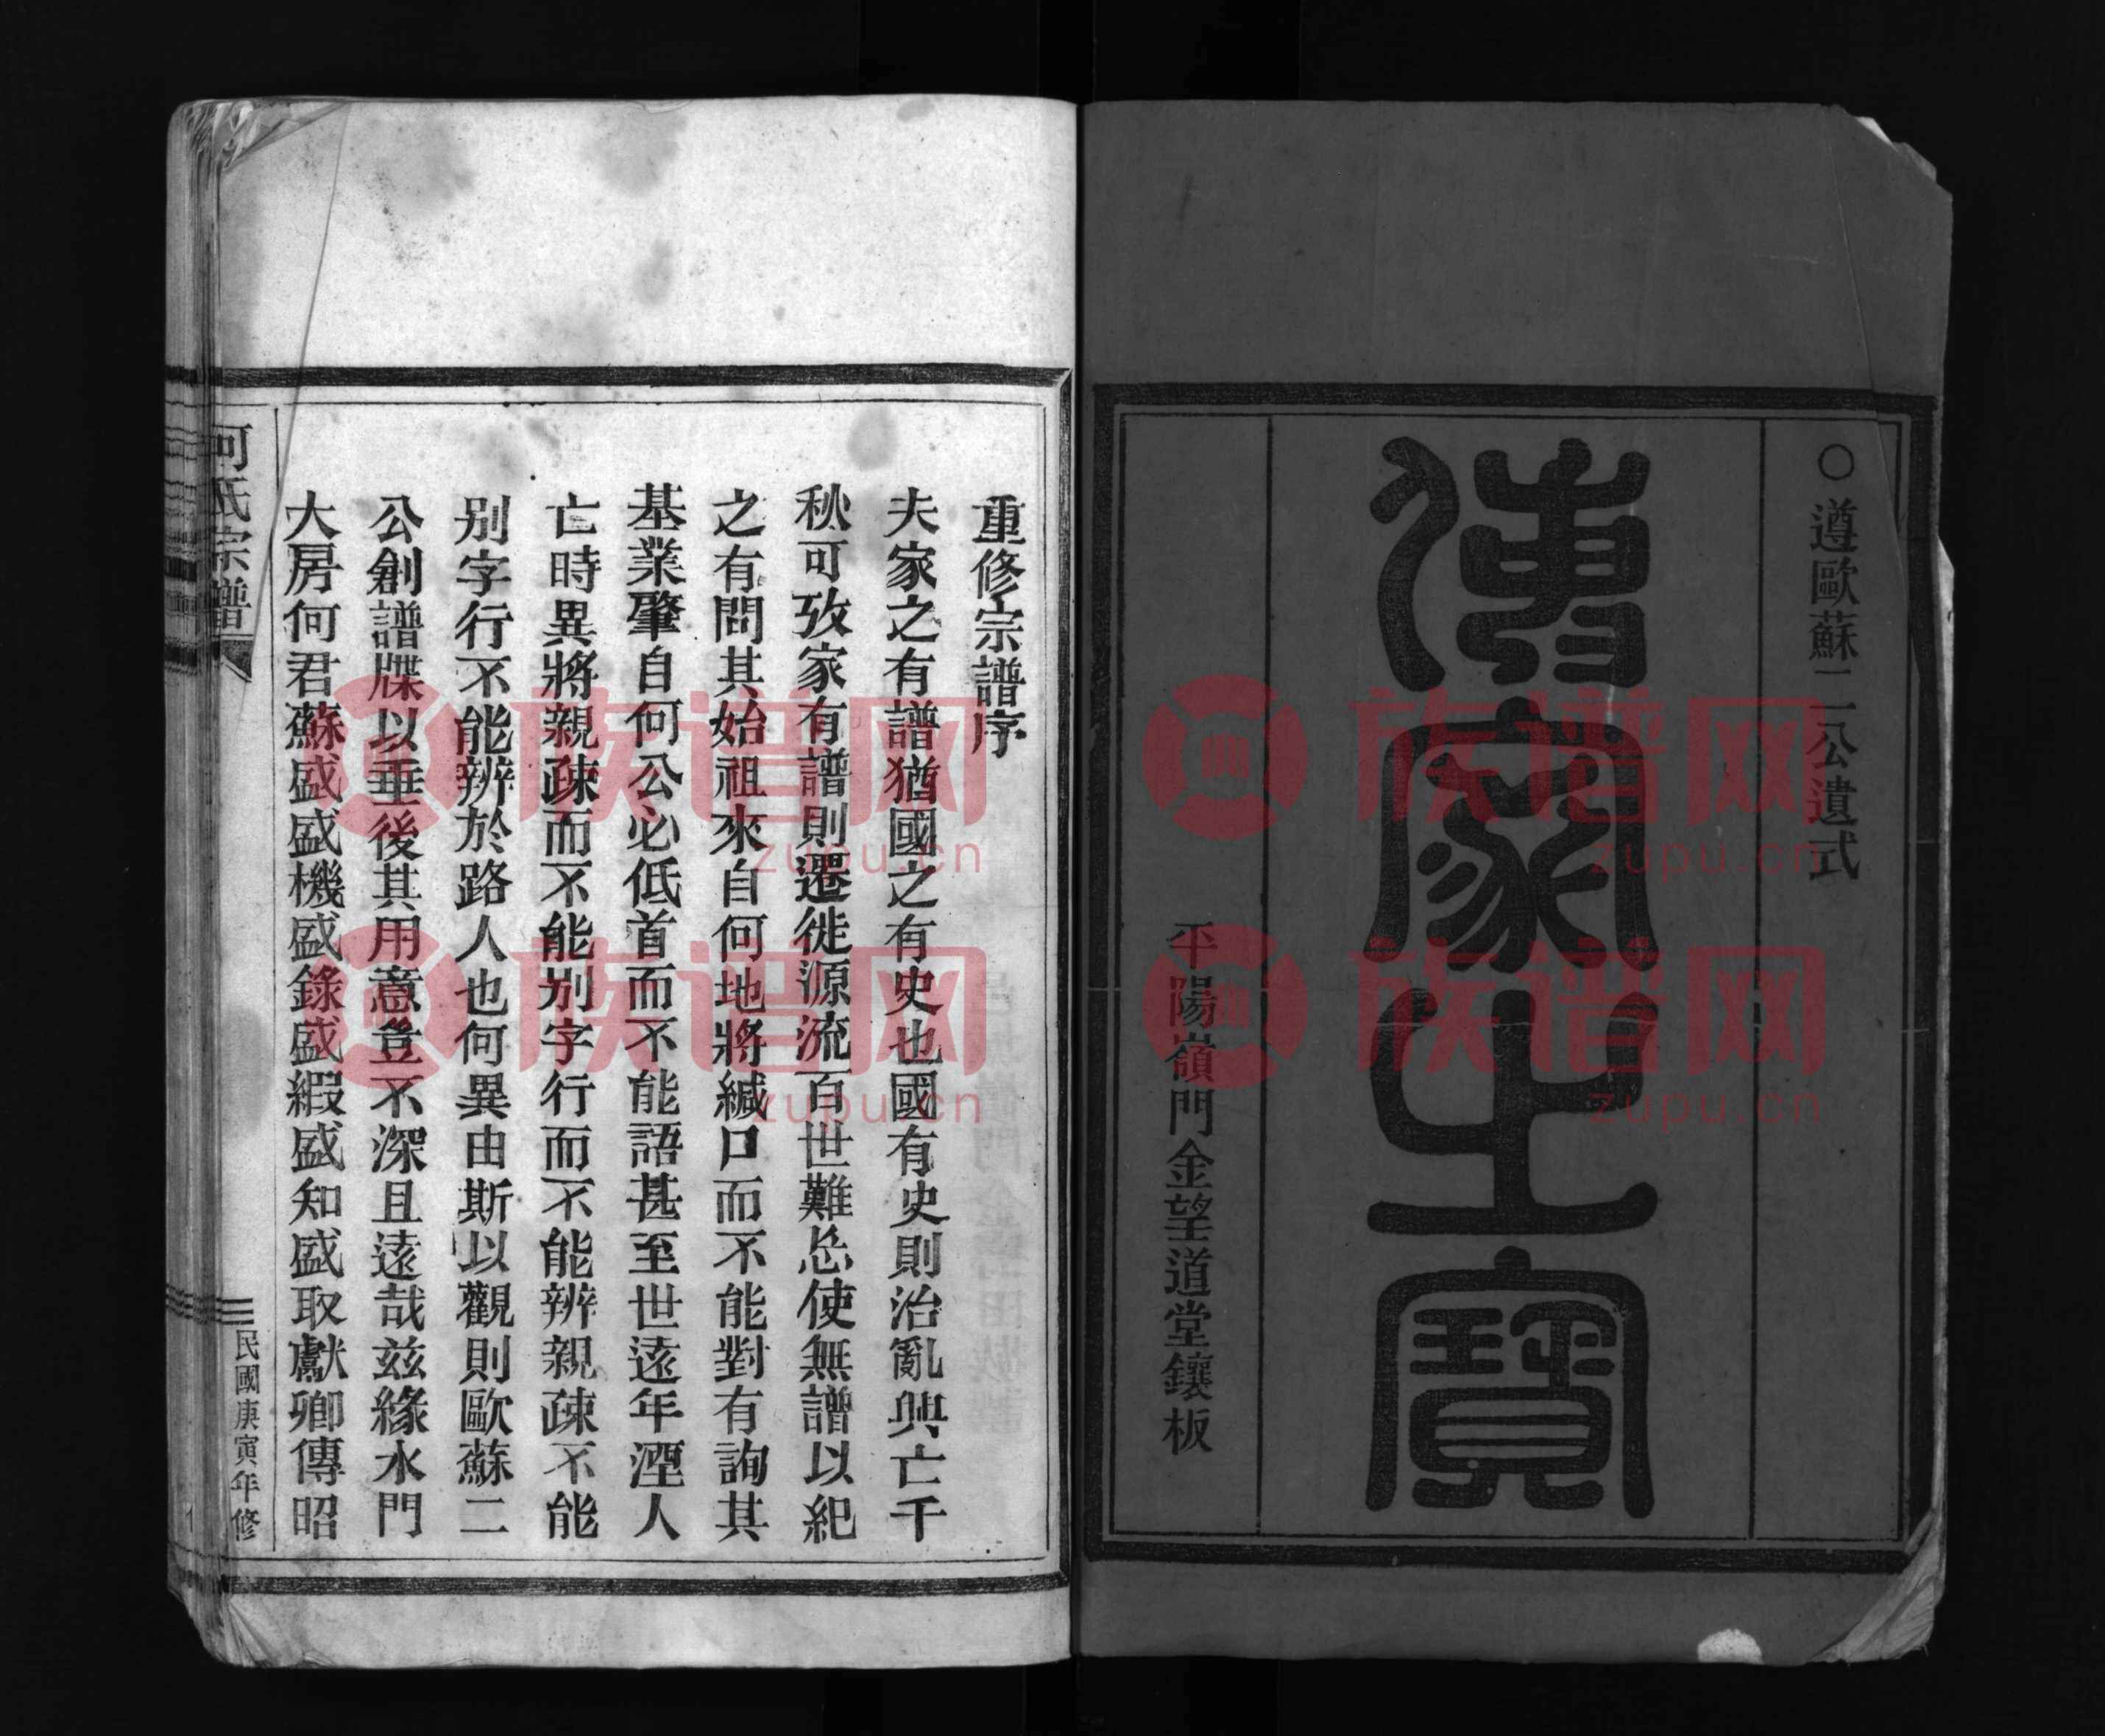 ○遵歐蘇二公遺式
傳家之寶
平陽嶺門金望道堂鑲板
重修宗譜序
夫家之有譜猶國之有史也國有史則治亂興亡千
秋可攷家有譜則遷徙源流百世難忘使無譜以紀
之有問其始祖來自何地將緘口而不能對有詢其
基業肇自何公必低首而不能語甚至世遠年湮人
亡時異將親疎而不能別字行而不能辨親疎不能
別字行不能辨於路人也何異由斯以觀則歐蘇二
公創譜牒以垂後其用意豈不深且遠哉兹緣水門
大房何君蘇盛盛機盛錄盛緞盛知盛取獻卿傳昭
何氏宗譜
民國庚寅年修
族谱网
zupu.cn
族谱网
zupu.cn
族谱网
zupu.cn
族谱网
zupu.cn